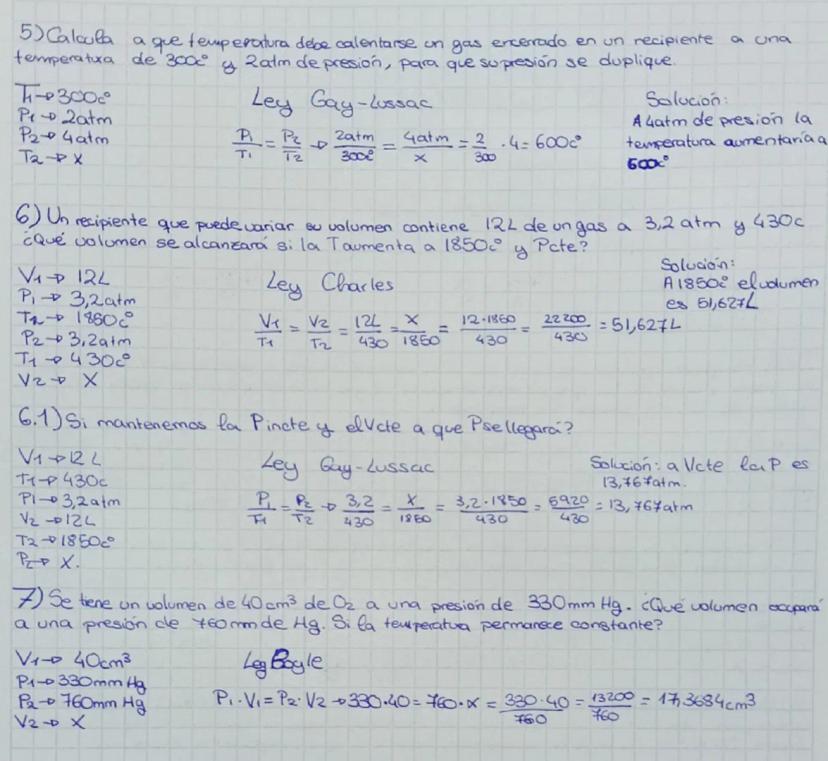 5) Calcula a que temperatura debe calentarse un gas encerrado en un recipiente a una
temperatura de 300c° y 2atm de presión, para que su presión se duplique.
T1→300c°
P1→2atm
P2→4atm
T2→x
Ley Gay-Lussac
P1/T1 = P2/T2 → 2atm/300c° = 4atm/x = 2/300 · 4 = 600c°
Solución:
A 4atm de presión la
temperatura aumentaría a
600c°
6) Un recipiente que puede variar su volumen contiene 12L de un gas a 3,2 atm y 430c
¿Qué volumen se alcanzará si la T aumenta a 1850c° y Pcte?
V1→ 12L
P1→ 3,2atm
T2→ 1850c°
P2→ 3,2atm
T1→ 430c°
V2→ X
Ley Charles
V1/T1 = V2/T2 = 12L/430 = x/1850 = 12·1850/430 = 22200/430 = 51,627L
Solución:
A 1850c° el volumen
es 51,627L
6.1) Si mantenemos la Pincte y el Vcte a que P se llegará?
V1→12L
T1→430c
P1→3,2atm
V2→12L
T2→1850c°
P2→ X.
Ley Gay-Lussac
P1/T1 = P2/T2 → 3,2/430 = x/1850 = 3,2·1850/430 = 5920/430 = 13,767atm
Solución: a Vcte la P es
13,767atm.
7) Se tiene un volumen de 40cm³ de O2 a una presión de 330mm Hg. ¿Qué volumen ocupará
a una presión de 760mm de Hg. Si la temperatura permanece constante?
V1→ 40cm³
P1→330mm Hg
P2→760mm Hg
V2→ X
Ley Boyle
P1·V1=P2·V2 →330·40=760·x = 330·40/760 = 13200/760 = 17,3684cm³